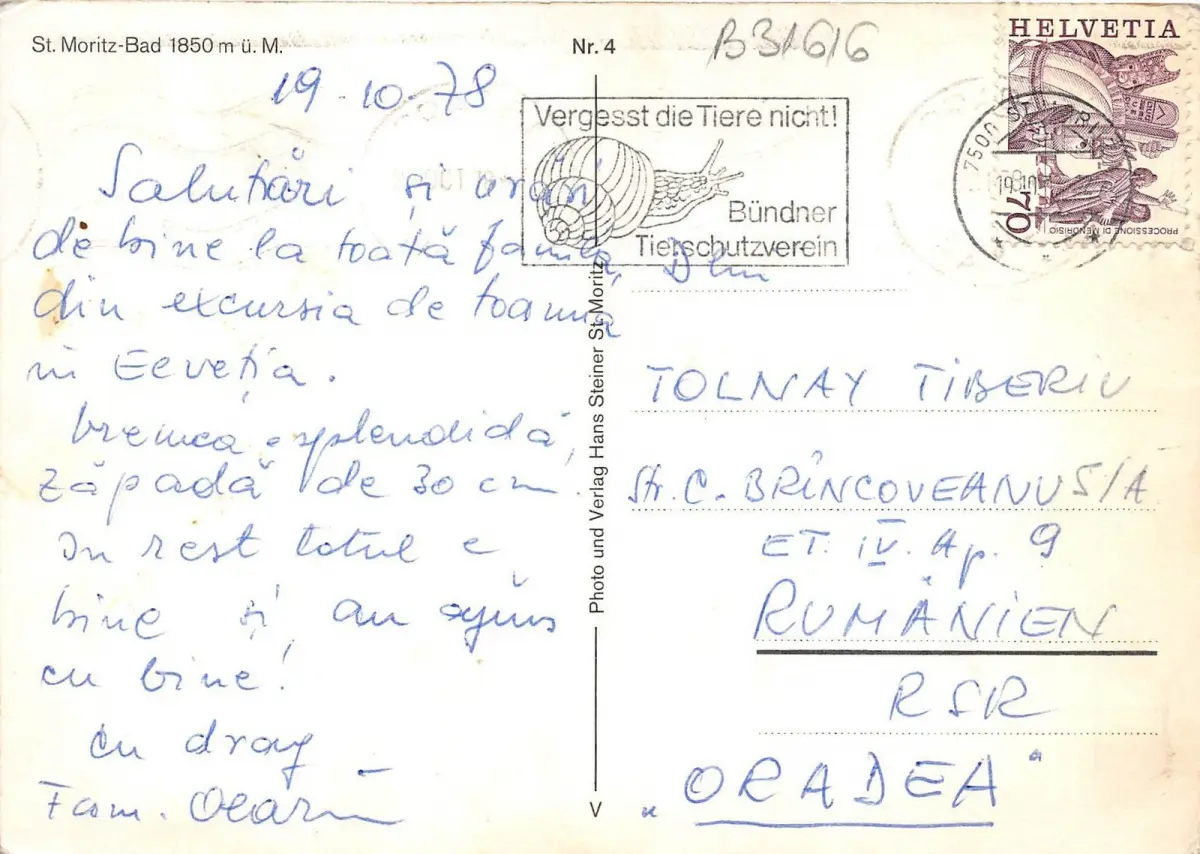 St. Moritz-Bad 1850 m ü. M.
Nr. 4
B31616
HELVETIA
70
PROCESSIONE DI MENDRISIO
7500 ST. MORITZ
19.10
Vergesst die Tiere nicht!
Bündner
Tierschutzverein
19-10-78
Salutări și urări
de bine la toată familia,
din excursia de toamnă
in Eeveția.
Vremea e splendidă,
zăpadă de 30 cm.
In rest totul e
bine și am ajuns
cu bine!
Cu drag
Fam.
Photo und Verlag Hans Steiner St. Moritz
V
Dlui
TOLNAY TIBERIU
Str. C. BRÎNCOVEANU 5/A
ET. IV. Ap. 9
RUMÄNIEN
RSR
„ORADEA"